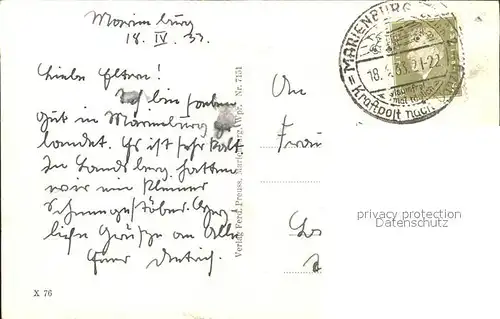 Marienburg
18. IV. 33.
Liebe Eltern!
Ich bin soeben
gut in Marienburg ge
landet. Es ist sehr kalt
In Landsberg hatten
wir ein kleines
Schneegestöber. Herz
liche Grüße an Alle
Euer Dietrich.
X 76
Verlag Ferd. Preuss, Marienburg, Wpr. Nr. 7151
MARIENBURG
18. 21-22
Kraftpost nach
An
Frau
privacy protection
watermark